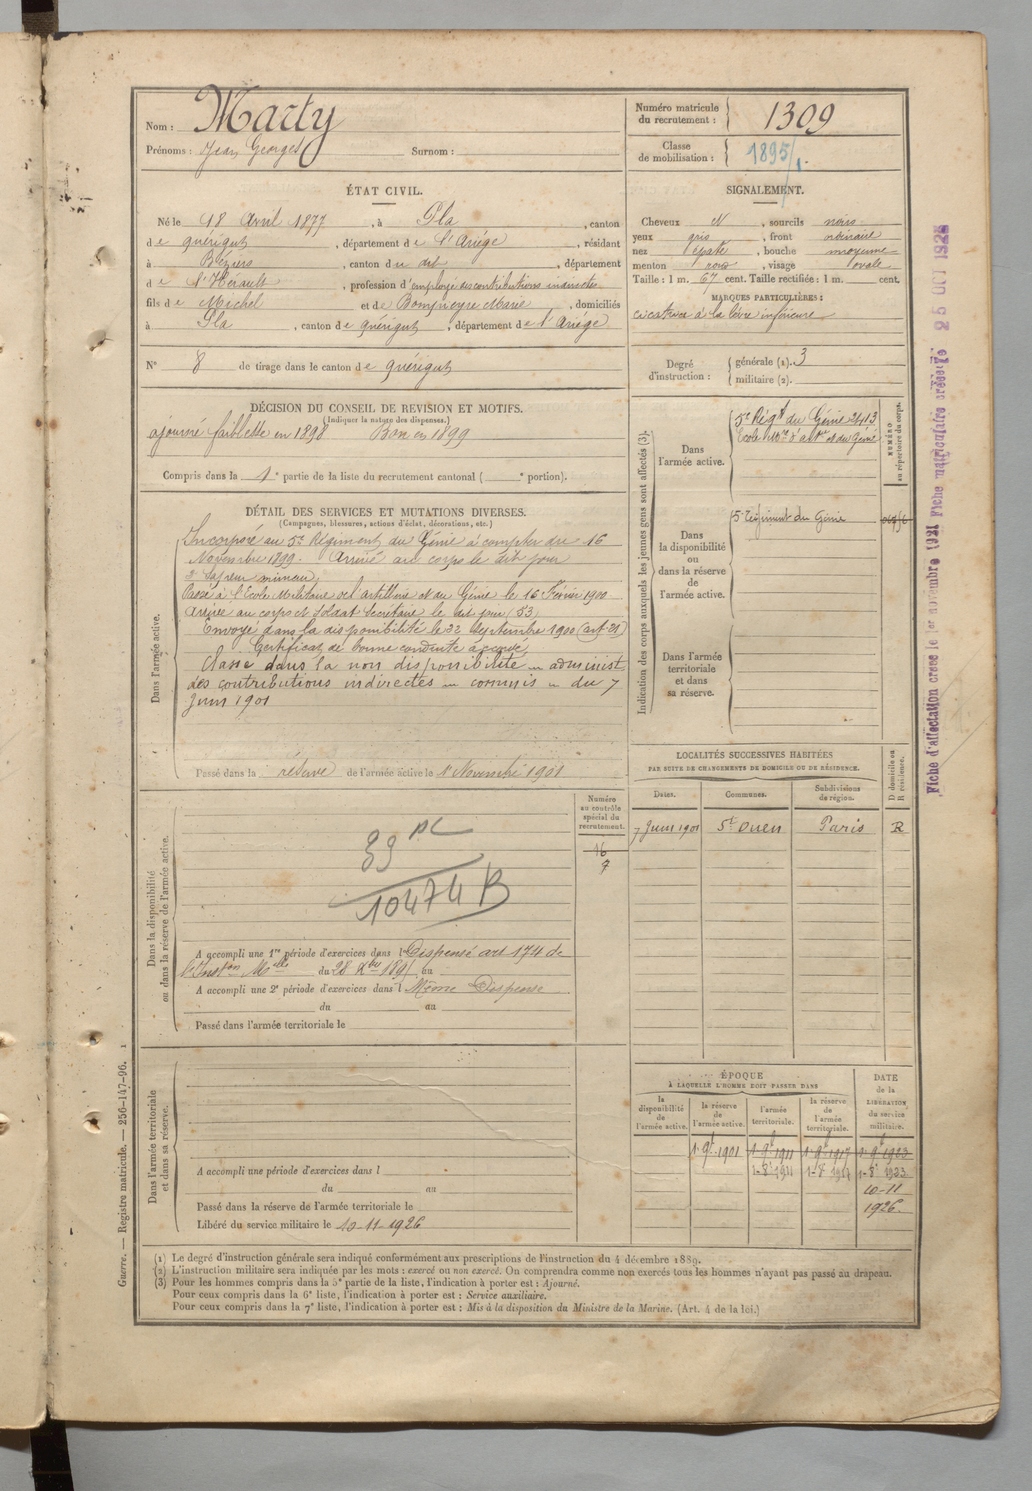 Nom : Marty
Prénoms : Jean Georges Surnom :
Numéro matricule du recrutement : 1309
Classe de mobilisation : 1895/1.
ÉTAT CIVIL.
Né le 18 Avril 1877, à Pla, canton
de quérigut, département de l'Ariége, résidant
à Béziers, canton du dit, département
de l'Hérault, profession d'employé des contributions indirectes
fils de Michel et de Bompieyre Marie, domiciliés
à Pla, canton de quérigut, département de l'Ariége
N° 8 de tirage dans le canton de quérigut
SIGNALEMENT.
Cheveux N, sourcils noirs
yeux gris, front ordinaire
nez épaté, bouche moyenne
menton rond, visage ovale
Taille : 1 m. 67 cent. Taille rectifiée : 1 m. cent.
MARQUES PARTICULIÈRES :
cicatrice à la lèvre inférieure
Degré d'instruction : générale (1). 3
militaire (2).
DÉCISION DU CONSEIL DE REVISION ET MOTIFS.
(Indiquer la nature des dispenses.)
ajourné faiblesse en 1898 Bon en 1899
Compris dans la 1e partie de la liste du recrutement cantonal ( e portion).
DÉTAIL DES SERVICES ET MUTATIONS DIVERSES.
(Campagnes, blessures, actions d'éclat, décorations, etc.)
Dans l'armée active.
Incorporé au 5e Régiment du Génie à compter du 16
Novembre 1899. Arrivé au corps le dit jour
2e sapeur mineur
Passé à l'Ecole Militaire de l'artillerie et du Génie le 16 Février 1900
Arrivé au corps et soldat secrétaire le dit jour (53)
Envoyé dans la disponibilité le 22 Septembre 1900 (art. 21)
Certificat de bonne conduite accordé
Classé dans la non disponibilité — administ.
des contributions indirectes — commis — du 7
Juin 1901
Passé dans la réserve de l'armée active le 1 Novembre 1901
Indication des corps auxquels les jeunes gens sont affectés (3).
Dans l'armée active.
5e Régt du Génie 2413
Ecole Mre d'artie et du Génie
NUMÉRO au répertoire du corps.
Dans la disponibilité ou dans la réserve de l'armée active.
5e Régiment du Génie
Dans l'armée territoriale et dans sa réserve.
LOCALITÉS SUCCESSIVES HABITÉES
PAR SUITE DE CHANGEMENTS DE DOMICILE OU DE RÉSIDENCE.
Dates. Communes. Subdivisions de région. D domicile ou R résidence.
7 Juin 1901 St Ouen Paris R
Dans la disponibilité ou dans la réserve de l'armée active.
Numéro au contrôle spécial du recrutement.
16
7
10474 B
A accompli une 1re période d'exercices dans l Dispensé art 174 de
l'Inston Mlle du 28 Xbre 1895 au
A accompli une 2e période d'exercices dans l Même Dispense
du au
Passé dans l'armée territoriale le
Dans l'armée territoriale et dans sa réserve.
A accompli une période d'exercices dans l
du au
Passé dans la réserve de l'armée territoriale le
Libéré du service militaire le 10-11-1926
ÉPOQUE
À LAQUELLE L'HOMME DOIT PASSER DANS
la disponibilité de l'armée active. la réserve de l'armée active. l'armée territoriale. la réserve de l'armée territoriale. DATE de la LIBÉRATION du service militaire.
1-9t 1901 1-9t 1911 1-9t 1917 1-9t 1923
1-8t 1911 1-8t 1917 1-8t 1923
10-11
1926.
(1) Le degré d'instruction générale sera indiqué conformément aux prescriptions de l'instruction du 4 décembre 1889.
(2) L'instruction militaire sera indiquée par les mots : exercé ou non exercé. On comprendra comme non exercés tous les hommes n'ayant pas passé au drapeau.
(3) Pour les hommes compris dans la 5e partie de la liste, l'indication à porter est : Ajourné.
Pour ceux compris dans la 6e liste, l'indication à porter est : Service auxiliaire.
Pour ceux compris dans la 7e liste, l'indication à porter est : Mis à la disposition du Ministre de la Marine. (Art. 4 de la loi.)
Guerre. — Registre matricule. — 256-147-96. 1
Fiche d'affectation créée le 1er novembre 1921 Fiche matriculaire créée le 25 OCT 1925